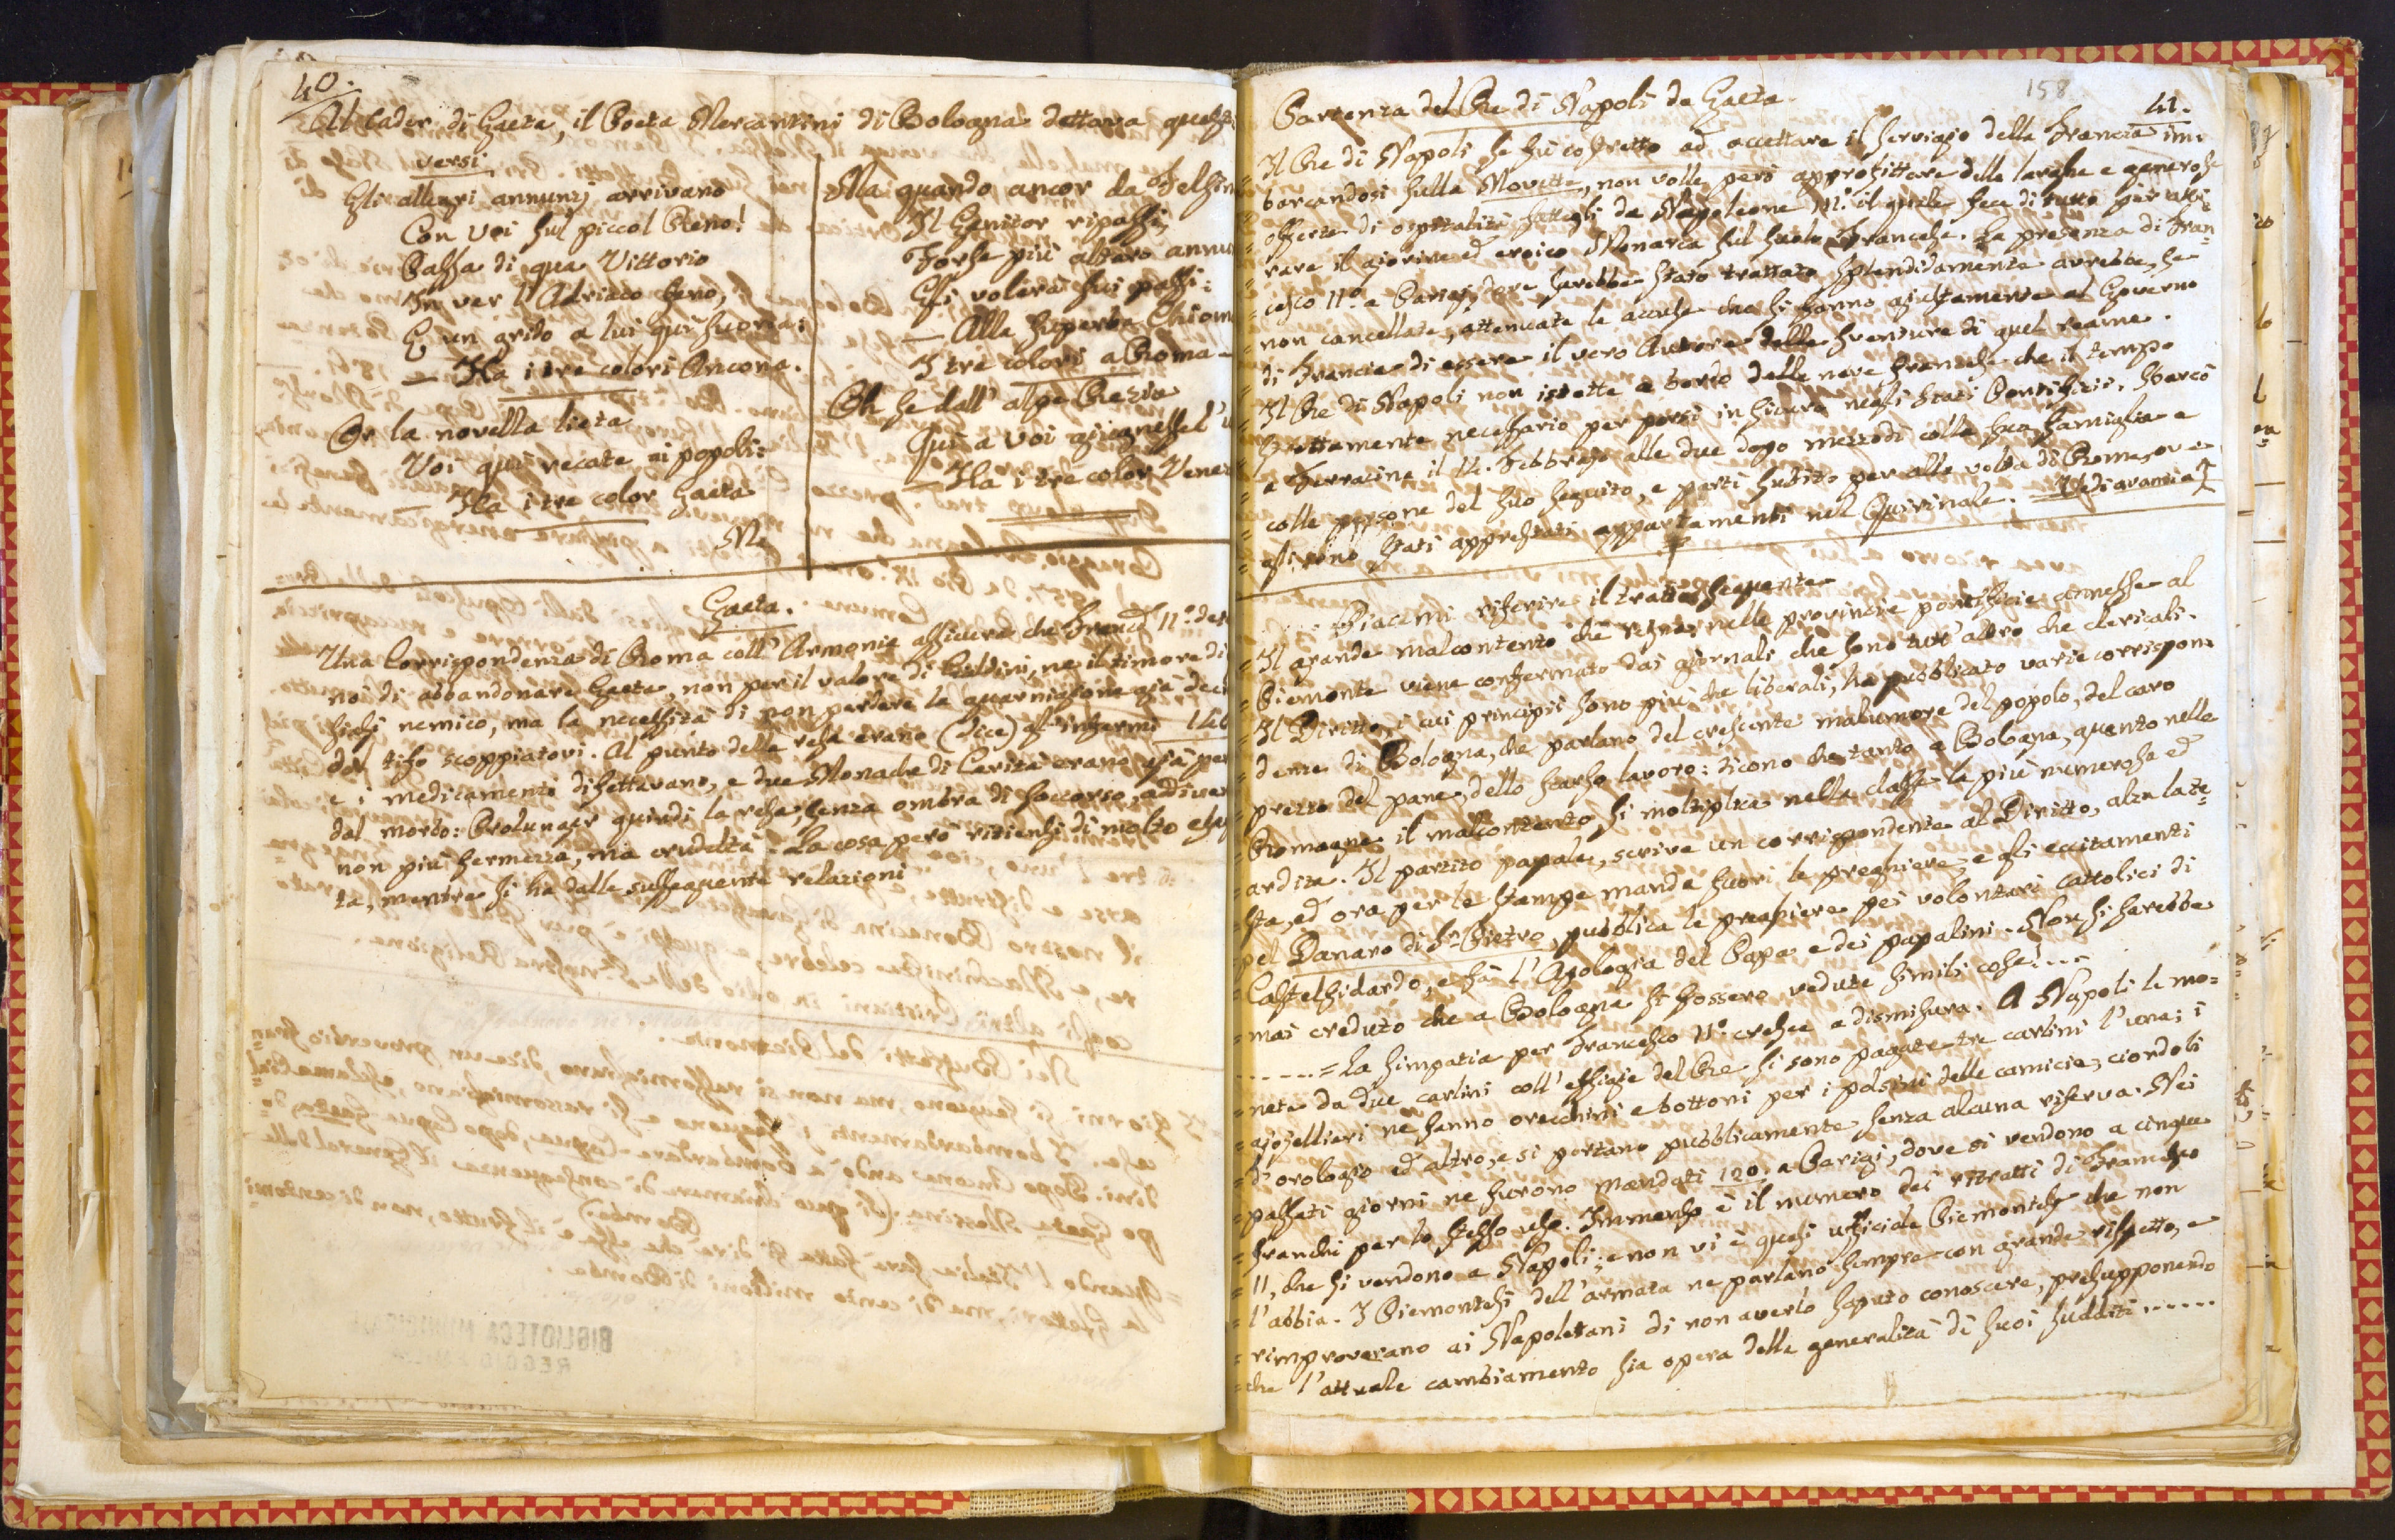 40.
Al cader di Gaeta, il Poeta Mercantini di Bologna dettava questi
versi
Gli allegri annunzj arrivano
Con voi sul piccol Reno!
Passa di qua Vittorio
In ver l'Adriaco seno,
E un grido a lui qui suona:
— Ha i tre colori Ancona.
Or la novella lieta
Voi qui recate ai popoli:
— Ha i tre color Gaeta
Ma
Ma quando ancor da Felsin
Il Genitor ripassi,
Forse più altero annun
Gli volerà sui passi:
— Alla superba Chiom
I tre colori a Roma —
Oh se dall'alpe Rezia
Qui a voi giugnesse l'u
— Ha i tre color Venez
Gaeta.
Una Corrispondenza di Roma coll'Armonia assicura che Franco II.º dete
nò di abbandonare Gaeta, non per il valore di Cialdini, ne il timore di
siasi nemico, ma la necessità di non perdere la guarnigione già deci
dal tifo scoppiatovi. Al punto della resa erano (dice) gl'infermi 140
e i medicamenti difettavano, e due Monache di Carità erano già per
dal morbo: Prolungar quindi la resa, senza ombra di soccorso, adive
non più fermezza, ma crudeltà. La cosa però ritiensi di molto esag
ta, mentre si ha dalle susseguenti relazioni
158
41.
Partenza del Re di Napoli da Gaeta.
Il Re di Napoli se fù costretto ad accettare il servigio della Francia im=
barcandosi sulla Movette, non volle però approfittare delle larghe e generose
= offerte di ospitalità fattegli da Napoleone III.º il quale fece di tutto per atti=
= rare il giovine ed eroico Monarca sul suolo Francese. La presenza di Fran=
= cesco II.º a Parigi, dove sarebbe stato trattato splendidamente avrebbe, se
= non cancellate, attenuate le accuse che si fanno giustamente al Governo
= di Francia di essere il vero Autore delle sventure di quel reame.
= Il Re di Napoli non istette a bordo della nave francese che il tempo
= strettamente necessario per porsi in sicuro negli Stati Pontificii. Sbarcò
= a Terracina il 14. Febbrajo alle due dopo mezzodì colla sua famiglia e
= colle persone del suo seguito, e partì subito per alla volta di Roma, ove
= gli sono stati apprestati appartamenti nel Quirinale. Vedi avanti a
..... Piacemi riferire il tratto seguente
= Il grande malcontento che regna nelle provincie pontificie annesse al
= Piemonte viene confermato dai giornali che sono tutt'altro che clericali.
= Il Diritto, i cui principii sono più che liberali, ha pubblicato varie corrispon=
= denze di Bologna, che parlano del crescente malumore del popolo, del caro
= prezzo del pane, dello scarso lavoro: dicono che tanto a Bologna, quanto nelle
= Romagne il malcontento si moltiplica nella classe la più numerosa ed
= ardita. Il partito papale, scrive un corrispondente al Diritto, alza la te=
= sta, ed ora per le stampe manda fuori le preghiere, e gli eccitamenti
= pel Danaro di Sn. Pietro, pubblica le preghiere pei volontari Cattolici di
= Castelfidardo, e fà l'Apologia del Papa e dei papalini. Non si sarebbe
= mai creduto che a Bologna si fossero vedute simili cose! ...
...... = La simpatia per Francesco II.º cresce a dismisura. A Napoli le mo=
= nete da due carlini coll'effigie del Re si sono pagate tre carlini l'una; i
= giojellieri ne fanno orecchini e bottoni per i polsini delle camicie, ciondoli
= d'orologio ed altro, e si portano pubblicamente senza alcuna riserva. Nei
= passati giorni ne furono mandati 120. a Parigi, dove si vendono a cinque
= franchi per lo stesso uso. Immenso è il numero dei ritratti di Francesco
= II, che si vendono a Napoli; e non vi è quasi ufficiale Piemontese che non
= l'abbia. I Piemontesi dell'armata ne parlano sempre con grande rispetto, e
= rimproverano ai Napoletani di non averlo saputo conoscere, presupponendo
= che l'attuale cambiamento sia opera della generalità di suoi sudditi ......